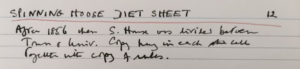 SPINNING HOUSE DIET SHEET 12
After 1856 when S. House was divided between
Town & Univ. Copy hung in each cell
together with copy of rules.